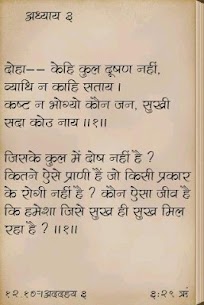 अध्याय ३
दोहा-- केहि कुल दूषण नहीं,
व्याधि न काहि सताय ।
कष्ट न भोग्यो कौन जन, सुखी
सदा कोउ नाय ॥१॥
जिसके कुल में दोष नहीं है ?
कितने ऐसे प्राणी हैं जो किसी प्रकार
के रोगी नहीं है ? कौन ऐसा जीव है
कि हमेशा जिसे सुख ही सुख मिल
रहा है ? ॥१॥